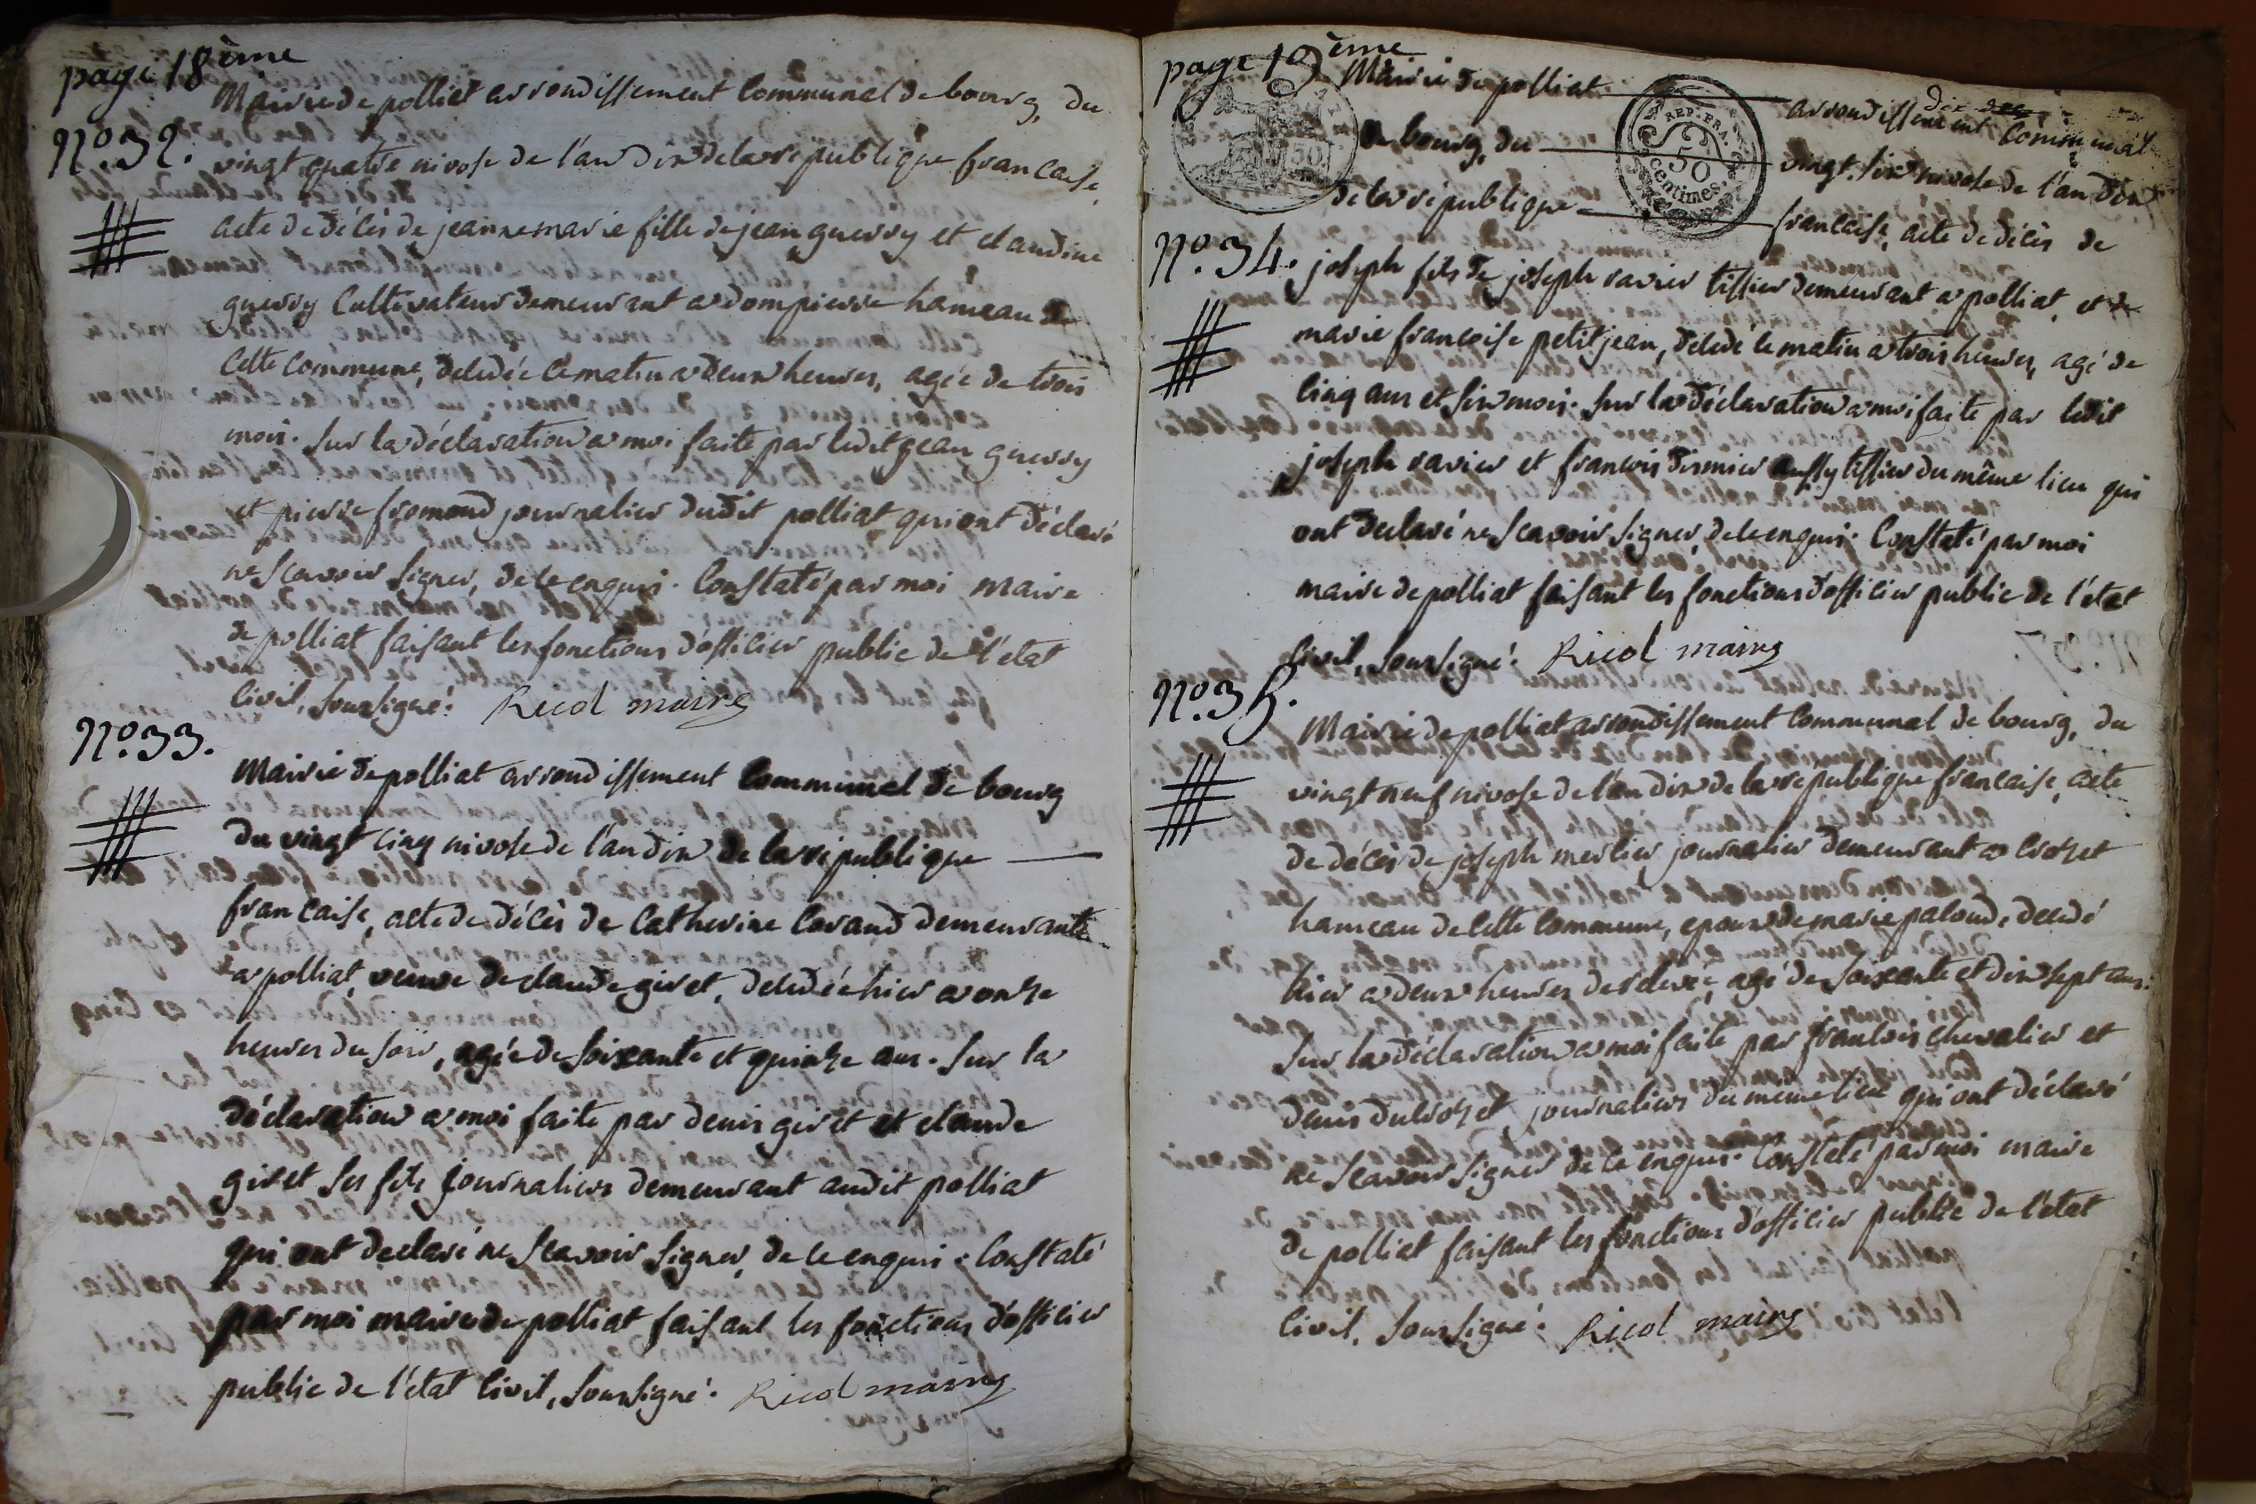 page 18ème
Mairie de polliat arrondissement Communal de bourg, du
N.o 32.
vingt quatre nivose de l'an dix de la republique francaise,
acte de décès de jeanne marie fille de jean guerry et claudine
guerry Cultivateur demeurant a dompierre hameau de
Cette Commune, decedée ce matin a deux heures, agée de trois
mois. Sur la déclaration a moi faite par ledit jean guerry
et pierre fromond journalier dudit polliat qui ont déclaré
ne scavoir signer, de ce enquis. Constaté par moi maire
de polliat faisant les fonctions d'officier public de l'état
Civil, soussigné. Ricol maire
N.o 33.
Mairie de polliat arrondissement Communal de bourg
du vingt cinq nivose de l'an dix de la republique
francaise, acte de décès de Catherine Corand demeurante
a polliat, veuve de claude giret, decedée hier a onze
heures du soir, agée de soixante et quinze ans. Sur la
déclaration a moi faite par denis giret et claude
giret ses fils journaliers demeurant audit polliat
qui ont declaré ne scavoir signer, de ce enquis. Constaté
par moi maire de polliat faisant les fonctions d'officier
public de l'état Civil, soussigné. Ricol maire
page 19ème
dix
Mairie de polliat arrondissement Communal
de bourg, du vingt six nivose de l'an dix
de la republique francaise, acte de décès de
REP. FRA.
50
Centimes.
50
N.o 34.
joseph fils de joseph ravier tissier demeurant a polliat, et de
marie francoise petitjean, decedé ce matin a trois heures, agé de
Cinq ans et six mois. Sur la déclaration a moi faite par ledit
joseph ravier et francois dirmier aussy tissier du même lieu qui
ont declaré ne scavoir signer, de ce enquis. Constaté par moi
maire de polliat faisant les fonctions d'officier public de l'état
Civil, soussigné. Ricol maire
N.o 35.
Mairie de polliat arrondissement Communal de bourg, du
vingt neuf nivose de l'an dix de la republique francaise, acte
de décès de joseph merlier journalier demeurant a Crozet
hameau de Cette Commune, epoux de marie paloud, decedé
hier a deux heures de relevée, agé de soixante et dix sept ans.
Sur la déclaration a moi faite par francois chevalier et
denis duCrozet journaliers du même lieu qui ont déclaré
ne scavoir signer de ce enquis. Constaté par moi maire
de polliat faisant les fonctions d'officier public de l'état
Civil, soussigné. Ricol maire